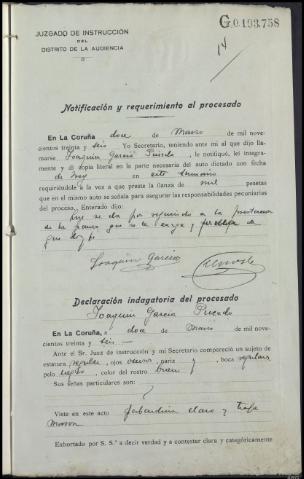 G.0.193.758
JUZGADO DE INSTRUCCIÓN
DEL
DISTRITO DE LA AUDIENCIA
14
Notificación y requerimiento al procesado
En La Coruña doce de Marzo de mil nove-
cientos treinta y seis Yo Secretario, teniendo ante mí al que dijo lla-
marse Joaquín García Pucedo, le notifiqué, leí íntegra-
mente y di copia literal en la parte necesaria del auto dictado con fecha
de hoy en este sumario
requiriéndole a la vez a que preste la fianza de mil pesetas
que en el mismo auto se señala para asegurar las responsabilidades pecuniarias
del proceso. Enterado dijo:
que se da por requerido a la
de la fianza que se le exige y
que doy fe
Joaquín García
Declaración indagatoria del procesado
Joaquín García Pucedo
En La Coruña, a doce de Marzo de mil no-
vecientos treinta y seis.—
Ante el Sr. Juez de instrucción y mi Secretario compareció un sujeto de
estatura regular, ojos nariz y boca regulares
pelo negro, color del rostro bueno
Sus señas particulares son:
Viste en este acto gabardina clara y traje
marrón
Exhortado por S. S.ª a decir verdad y a contestar clara y categóricamente